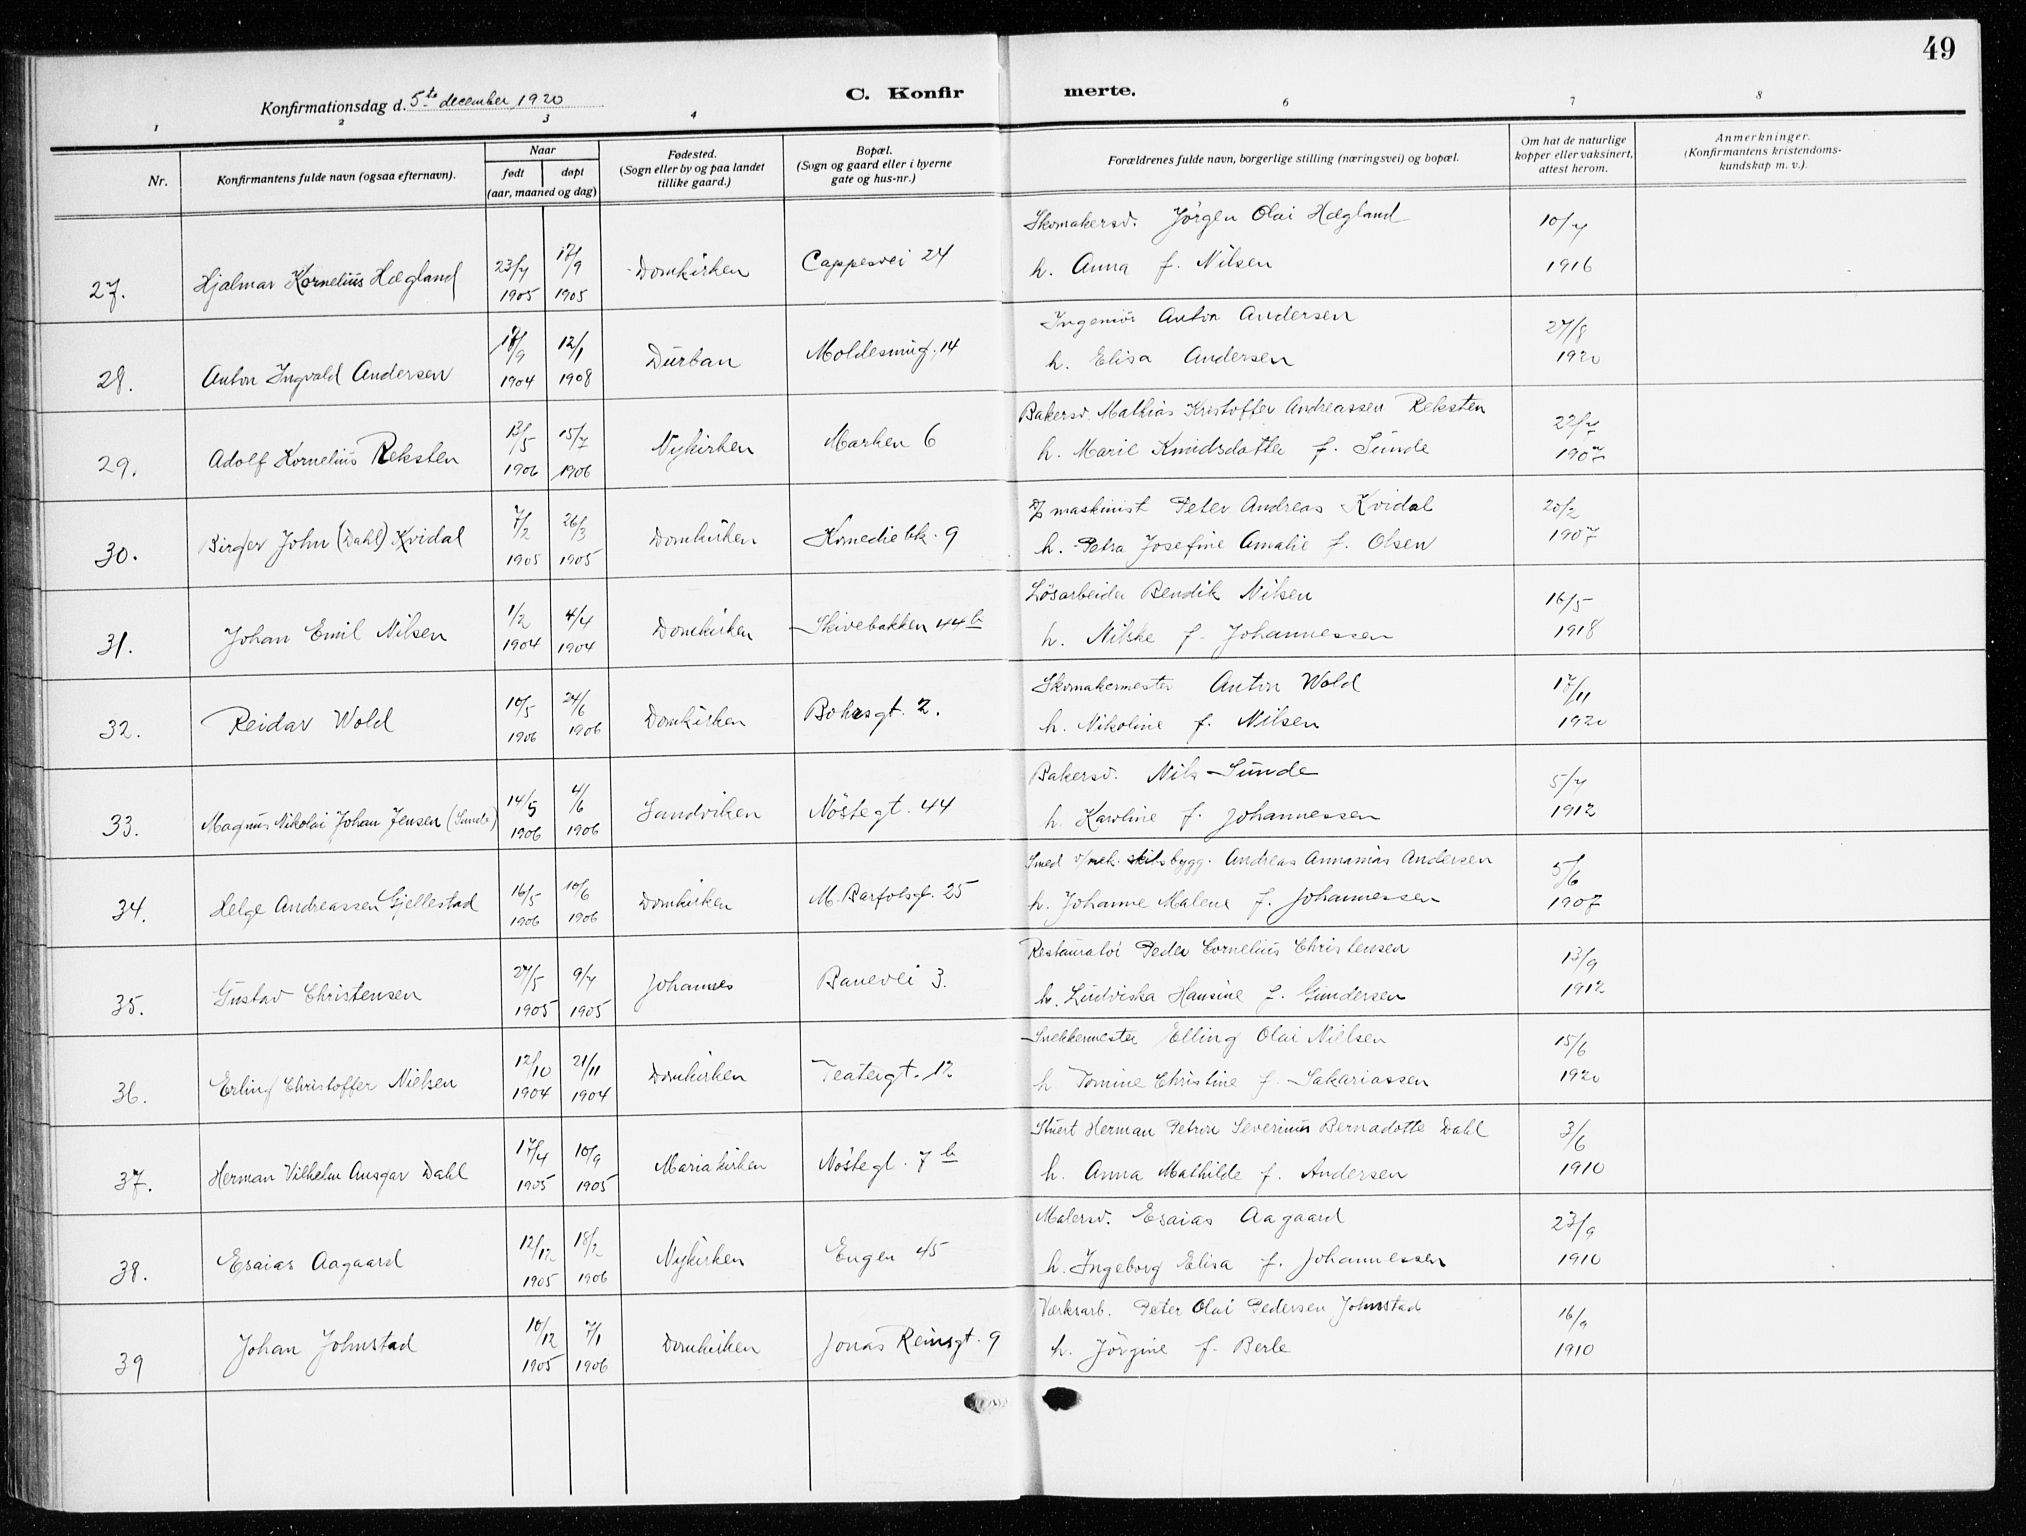 49
Konfirmationsdag d. 5te december 1920
C. Konfirmerte.
1 2 3 4 6 7 8
Nr.
Konfirmantens fulde navn (ogsaa efternavn).
Naar
født døpt
(aar, maaned og dag)
Fødested.
(Sogn eller by og paa landet
tillike gaard.)
Bopæl.
(Sogn og gaard eller i byerne
gate og hus-nr.)
Forældrenes fulde navn, borgerlige stilling (næringsvei) og bopæl.
Om hat de naturlige
kopper eller vaksinert,
attest herom.
Anmerkninger.
(Konfirmantens kristendoms-
kundskap m. v.).
27. Hjalmar Kornelius Hægland 23/7 1905 17/9 1905 Domkirken Cappesvei 24
Skomakersv. Jörgen Olai Hægland 10/7
h. Anna f. Nilsen 1916
28. Anton Ingvald Andersen 18/9 1904 12/1 1908 Durban Moldesmug. 14
Ingeniör Anton Andersen 27/8
h. Elisa Andersen 1920
29. Adolf Kornelius Reksten 13/5 1906 15/7 1906 Nykirken Marken 6
Bakersv. Mathias Kristoffer Andreassen Reksten 22/7
h. Marie Knudsdatter f. Sunde 1907
30. Birger John (Dahl) Kvidal 7/2 1905 26/3 1905 Domkirken Komediebk. 9
D/s maskinist Peter Andreas Kvidal 20/2
h. Petra Josefine Amalie f. Olsen 1907
31. Johan Emil Nilsen 1/2 1904 4/4 1904 Domkirken Skivebakken 44b
Lösarbeider Bendik Nilsen 16/5
h. Nilske f. Johannessen 1918
32. Reidar Wold 10/5 1906 24/6 1906 Domkirken Bohrsgt. 2.
Skomakermester Anton Wold 17/11
h. Nikoline f. Nilsen 1920
33. Magnus Nikolai Johan Jensen (Sunde) 14/5 1906 4/6 1906 Sandviken Nöstegt. 44
Bakersv. Nils Sunde 5/7
h. Karoline f. Johannessen 1912
34. Helge Andreassen Gjellestad 16/5 1906 10/6 1906 Domkirken M. Barfotsgt. 25
Smed v/mek. skibsbygg. Andreas Annanias Andersen 5/6
h. Johanne Malene f. Johannessen 1907
35. Gustav Christensen 27/5 1905 9/7 1905 Johannes Banevei 3.
Restauratör Peder Cornelius Christensen 13/9
h. Ludviska Hansine f. Gundersen 1912
36. Erling Christoffer Nielsen 12/10 1904 21/11 1904 Domkirken Teatergt. 12
Snekkermester Elling Olai Nielsen 15/6
h. Tomine Christine f. Sakariassen 1920
37. Herman Vilhelm Ansgar Dahl 17/4 1905 10/9 1905 Mariakirken Nöstegt. 7b
Stuert Herman Petron Severinus Bernadotte Dahl 3/6
h. Anna Mathilde f. Andersen 1910
38. Esaias Aagaard 12/12 1905 18/2 1906 Nykirken Engen 45
Malersv. Esaias Aagaard 23/9
h. Ingeborg Elisa f. Johannessen 1910
39 Johan Johnstad 10/12 1905 7/1 1906 Domkirken Jonas Reinsgt. 9
Værksarb. Peter Olai Pedersen Johnstad 16/9
h. Jörgine f. Berle 1910